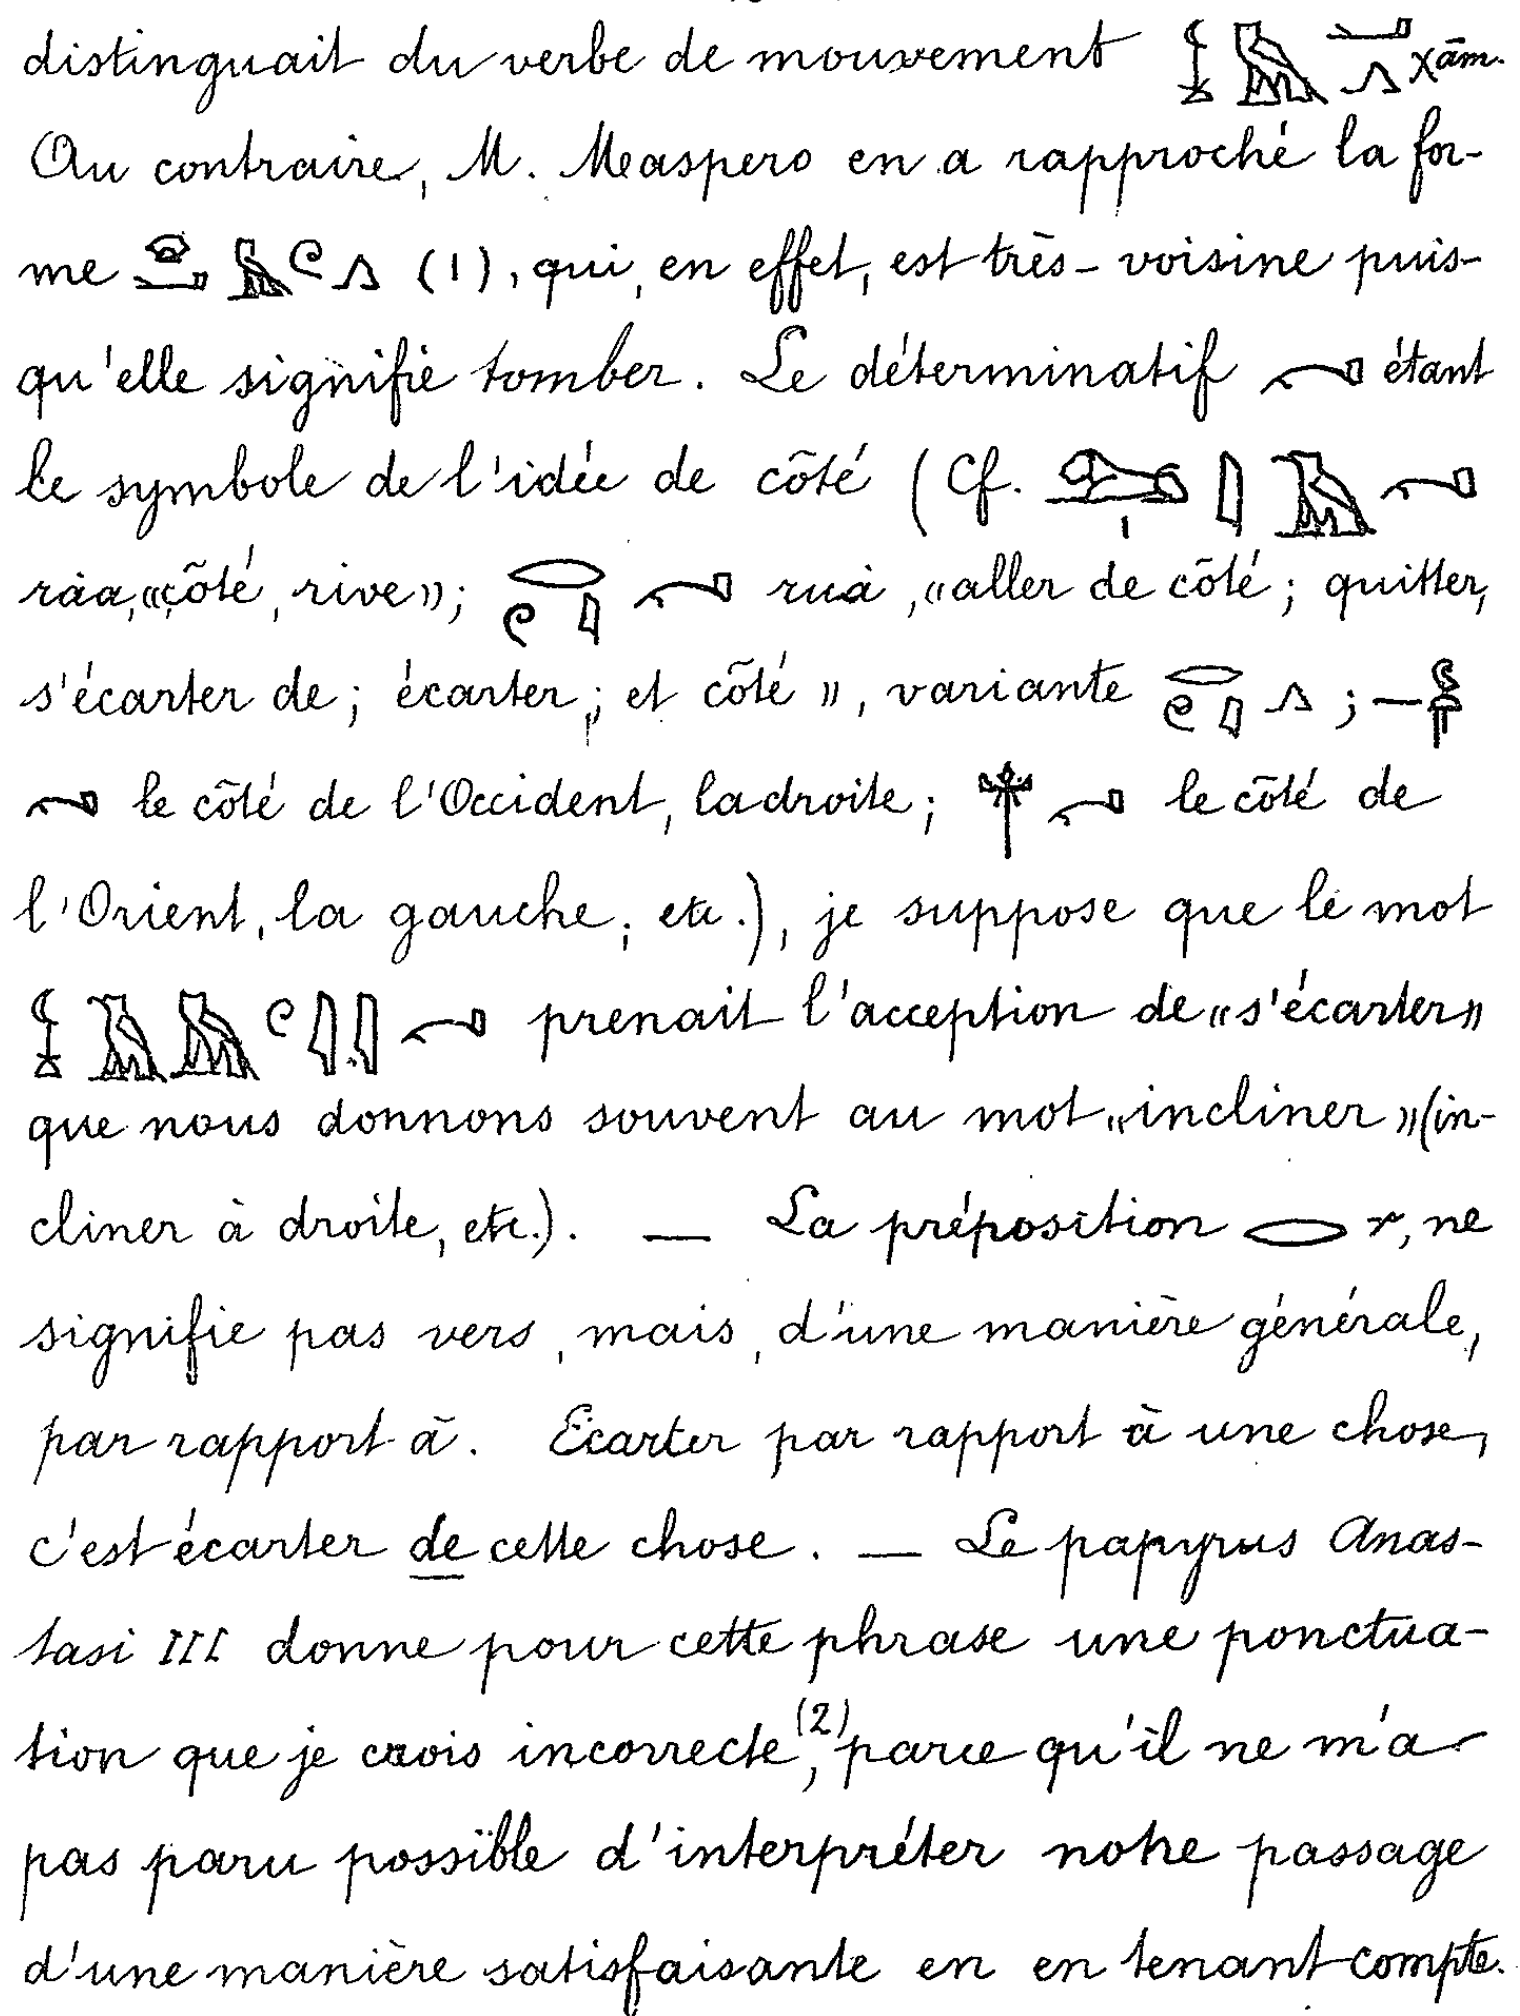 distinguait du verbe de mouvement χām.
Au contraire, M. Maspero en a rapproché la for-
me (1), qui, en effet, est très-voisine puis-
qu'elle signifie tomber. Le déterminatif étant
le symbole de l'idée de côté (Cf.
ràa, «côté, rive»; ruà, «aller de côté; quitter,
s'écarter de; écarter; et côté», variante ; —
le côté de l'Occident, la droite; le côté de
l'Orient, la gauche; etc.), je suppose que le mot
prenait l'acception de «s'écarter»
que nous donnons souvent au mot «incliner» (in-
cliner à droite, etc.). — La préposition r, ne
signifie pas vers, mais, d'une manière générale,
par rapport à. Ecarter par rapport à une chose,
c'est écarter de cette chose. — Le papyrus Anas-
tasi III donne pour cette phrase une ponctua-
tion que je crois incorrecte,(2) parce qu'il ne m'a
pas paru possible d'interpréter notre passage
d'une manière satisfaisante en en tenant compte.